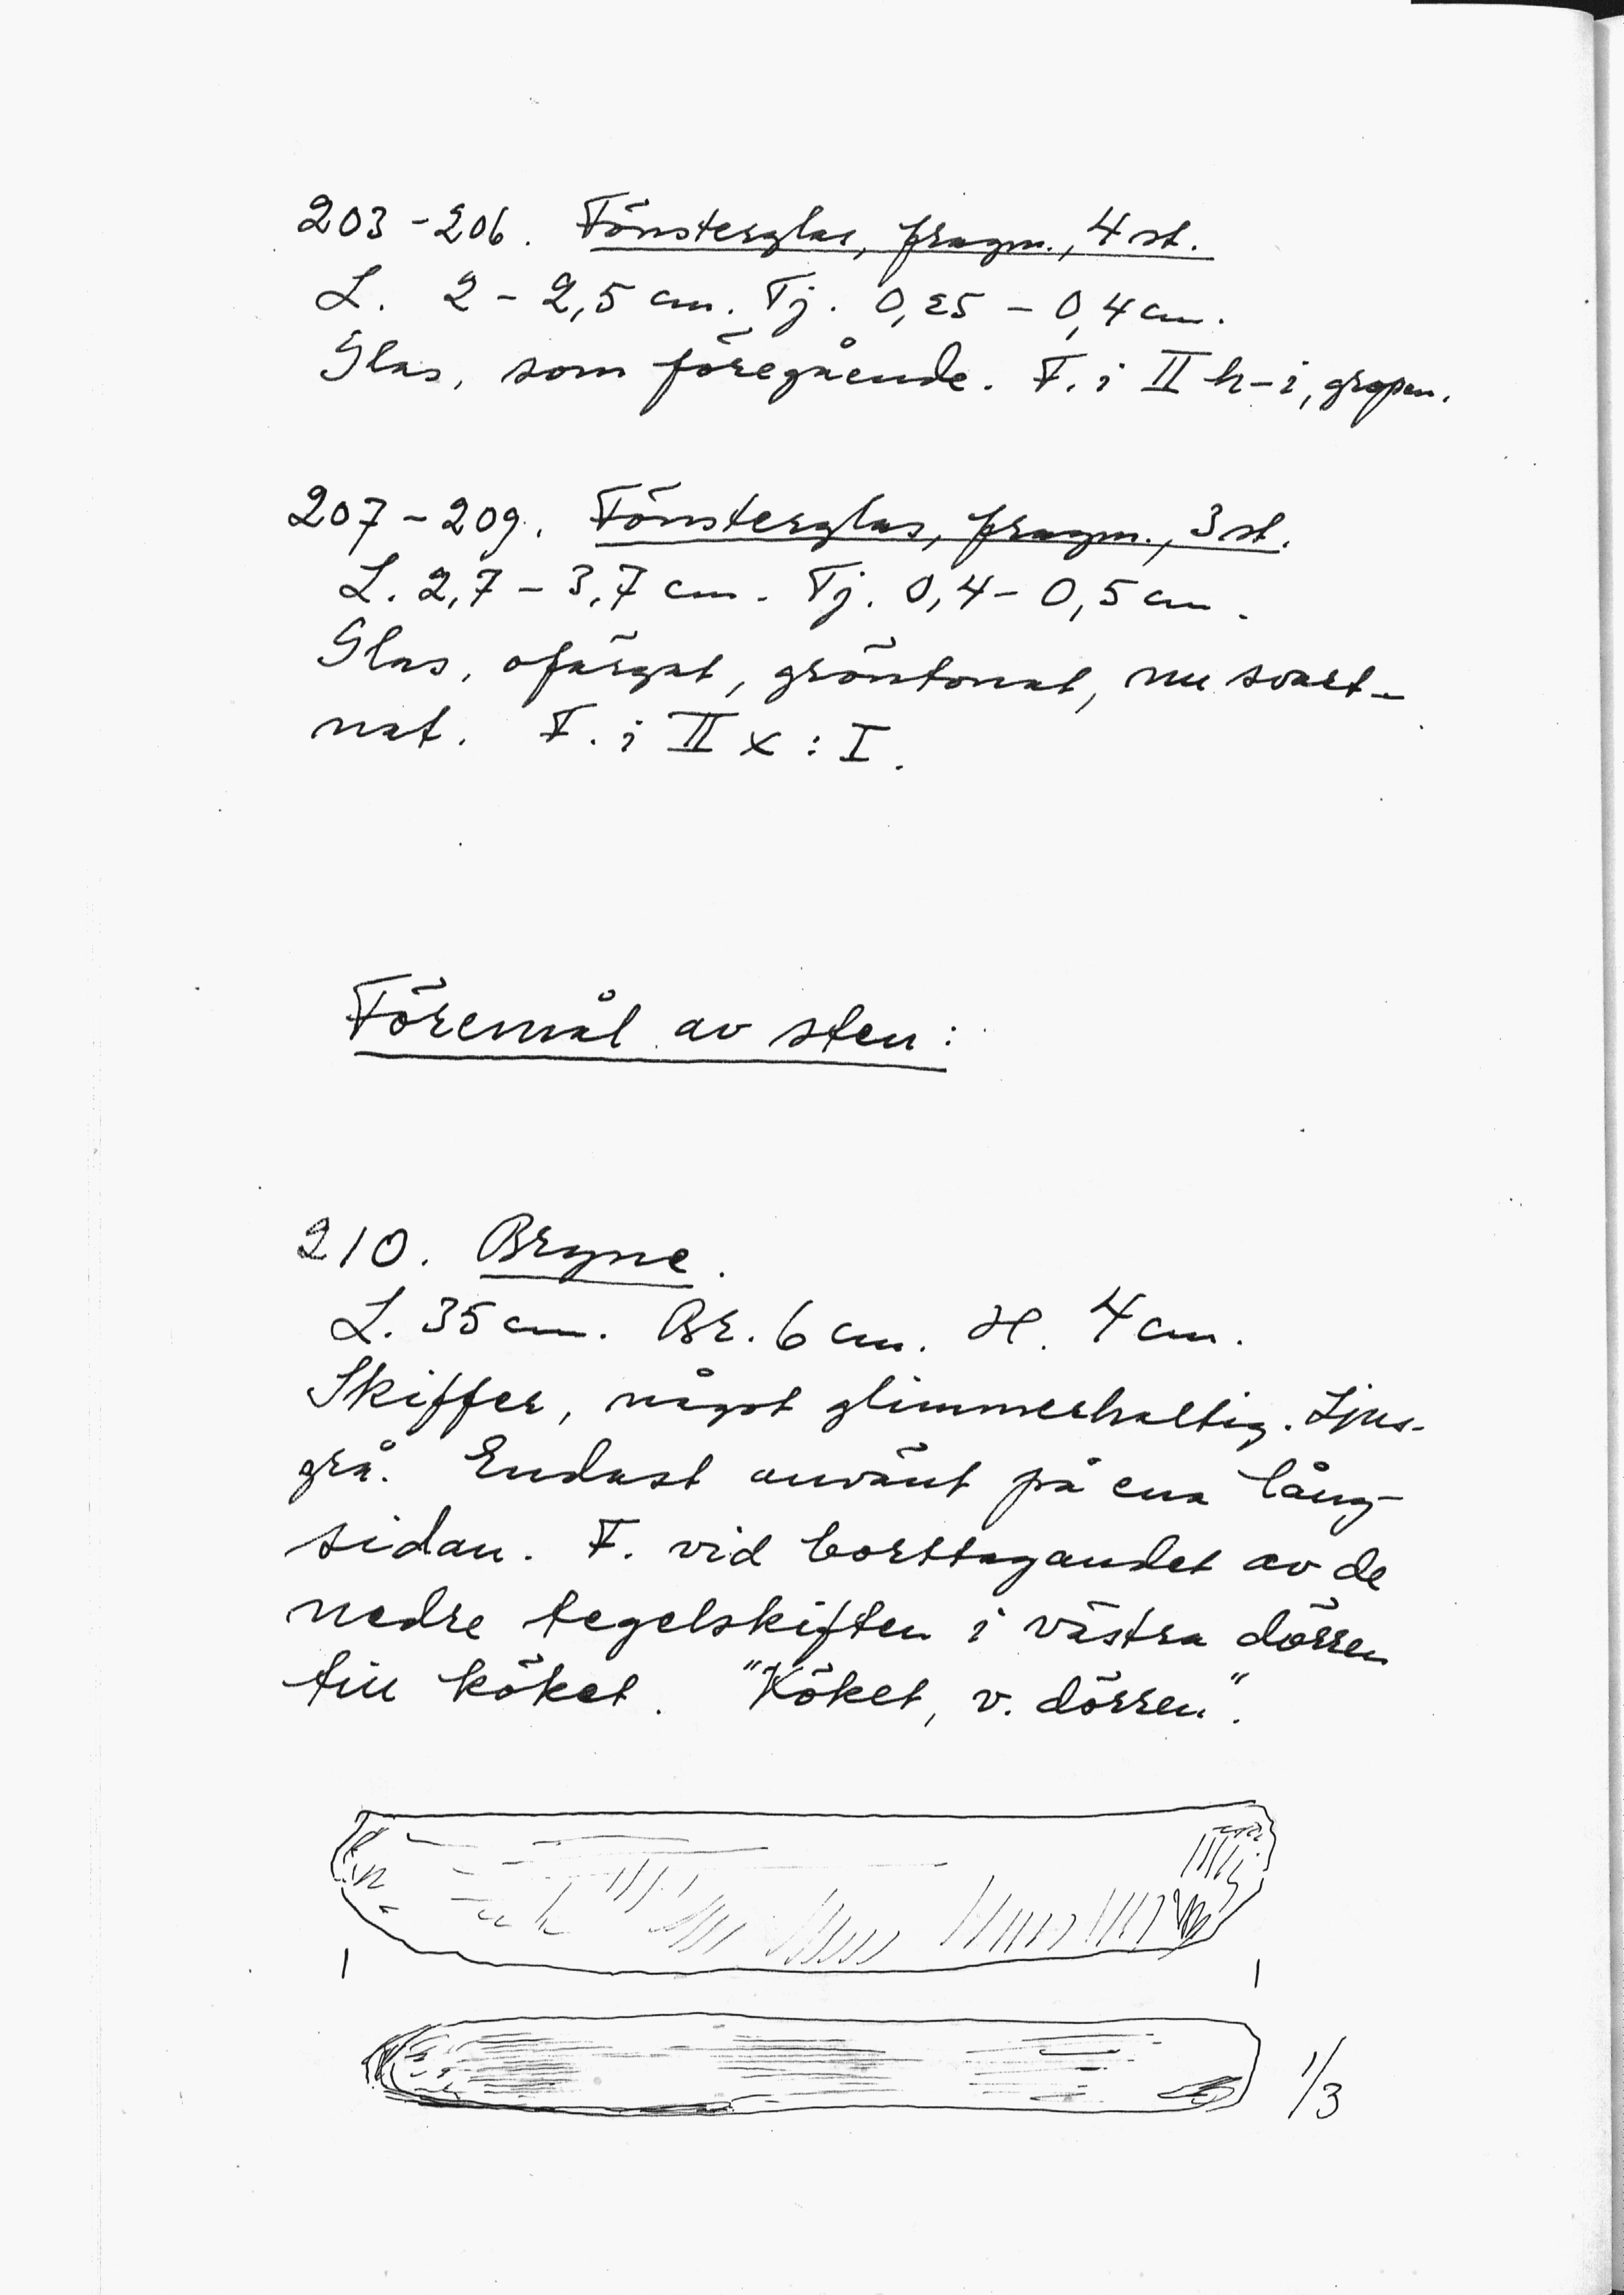 203-206. Fönsterglas, fragm., 4 st.
L. 2 - 2,5 cm. Tj. 0,25 - 0,4 cm.
Glas, som föregående. F. i II h-i, gropen.
207-209. Fönsterglas, fragm., 3 st.
L. 2,7 - 3,7 cm. Tj. 0,4 - 0,5 cm.
Glas, ofärgat, gröntonat, nu svart-
nat. F. i II x : I.
Föremål av sten:
210. Bryne.
L. 35 cm. Br. 6 cm. H. 4 cm.
Skiffer, något glimmerhaltig. Ljus-
grå. Endast använt på ena lång-
sidan. F. vid borttagandet av de
nedre tegelskiften i västra dörren
till köket. "Köket, v. dörren".
1/3